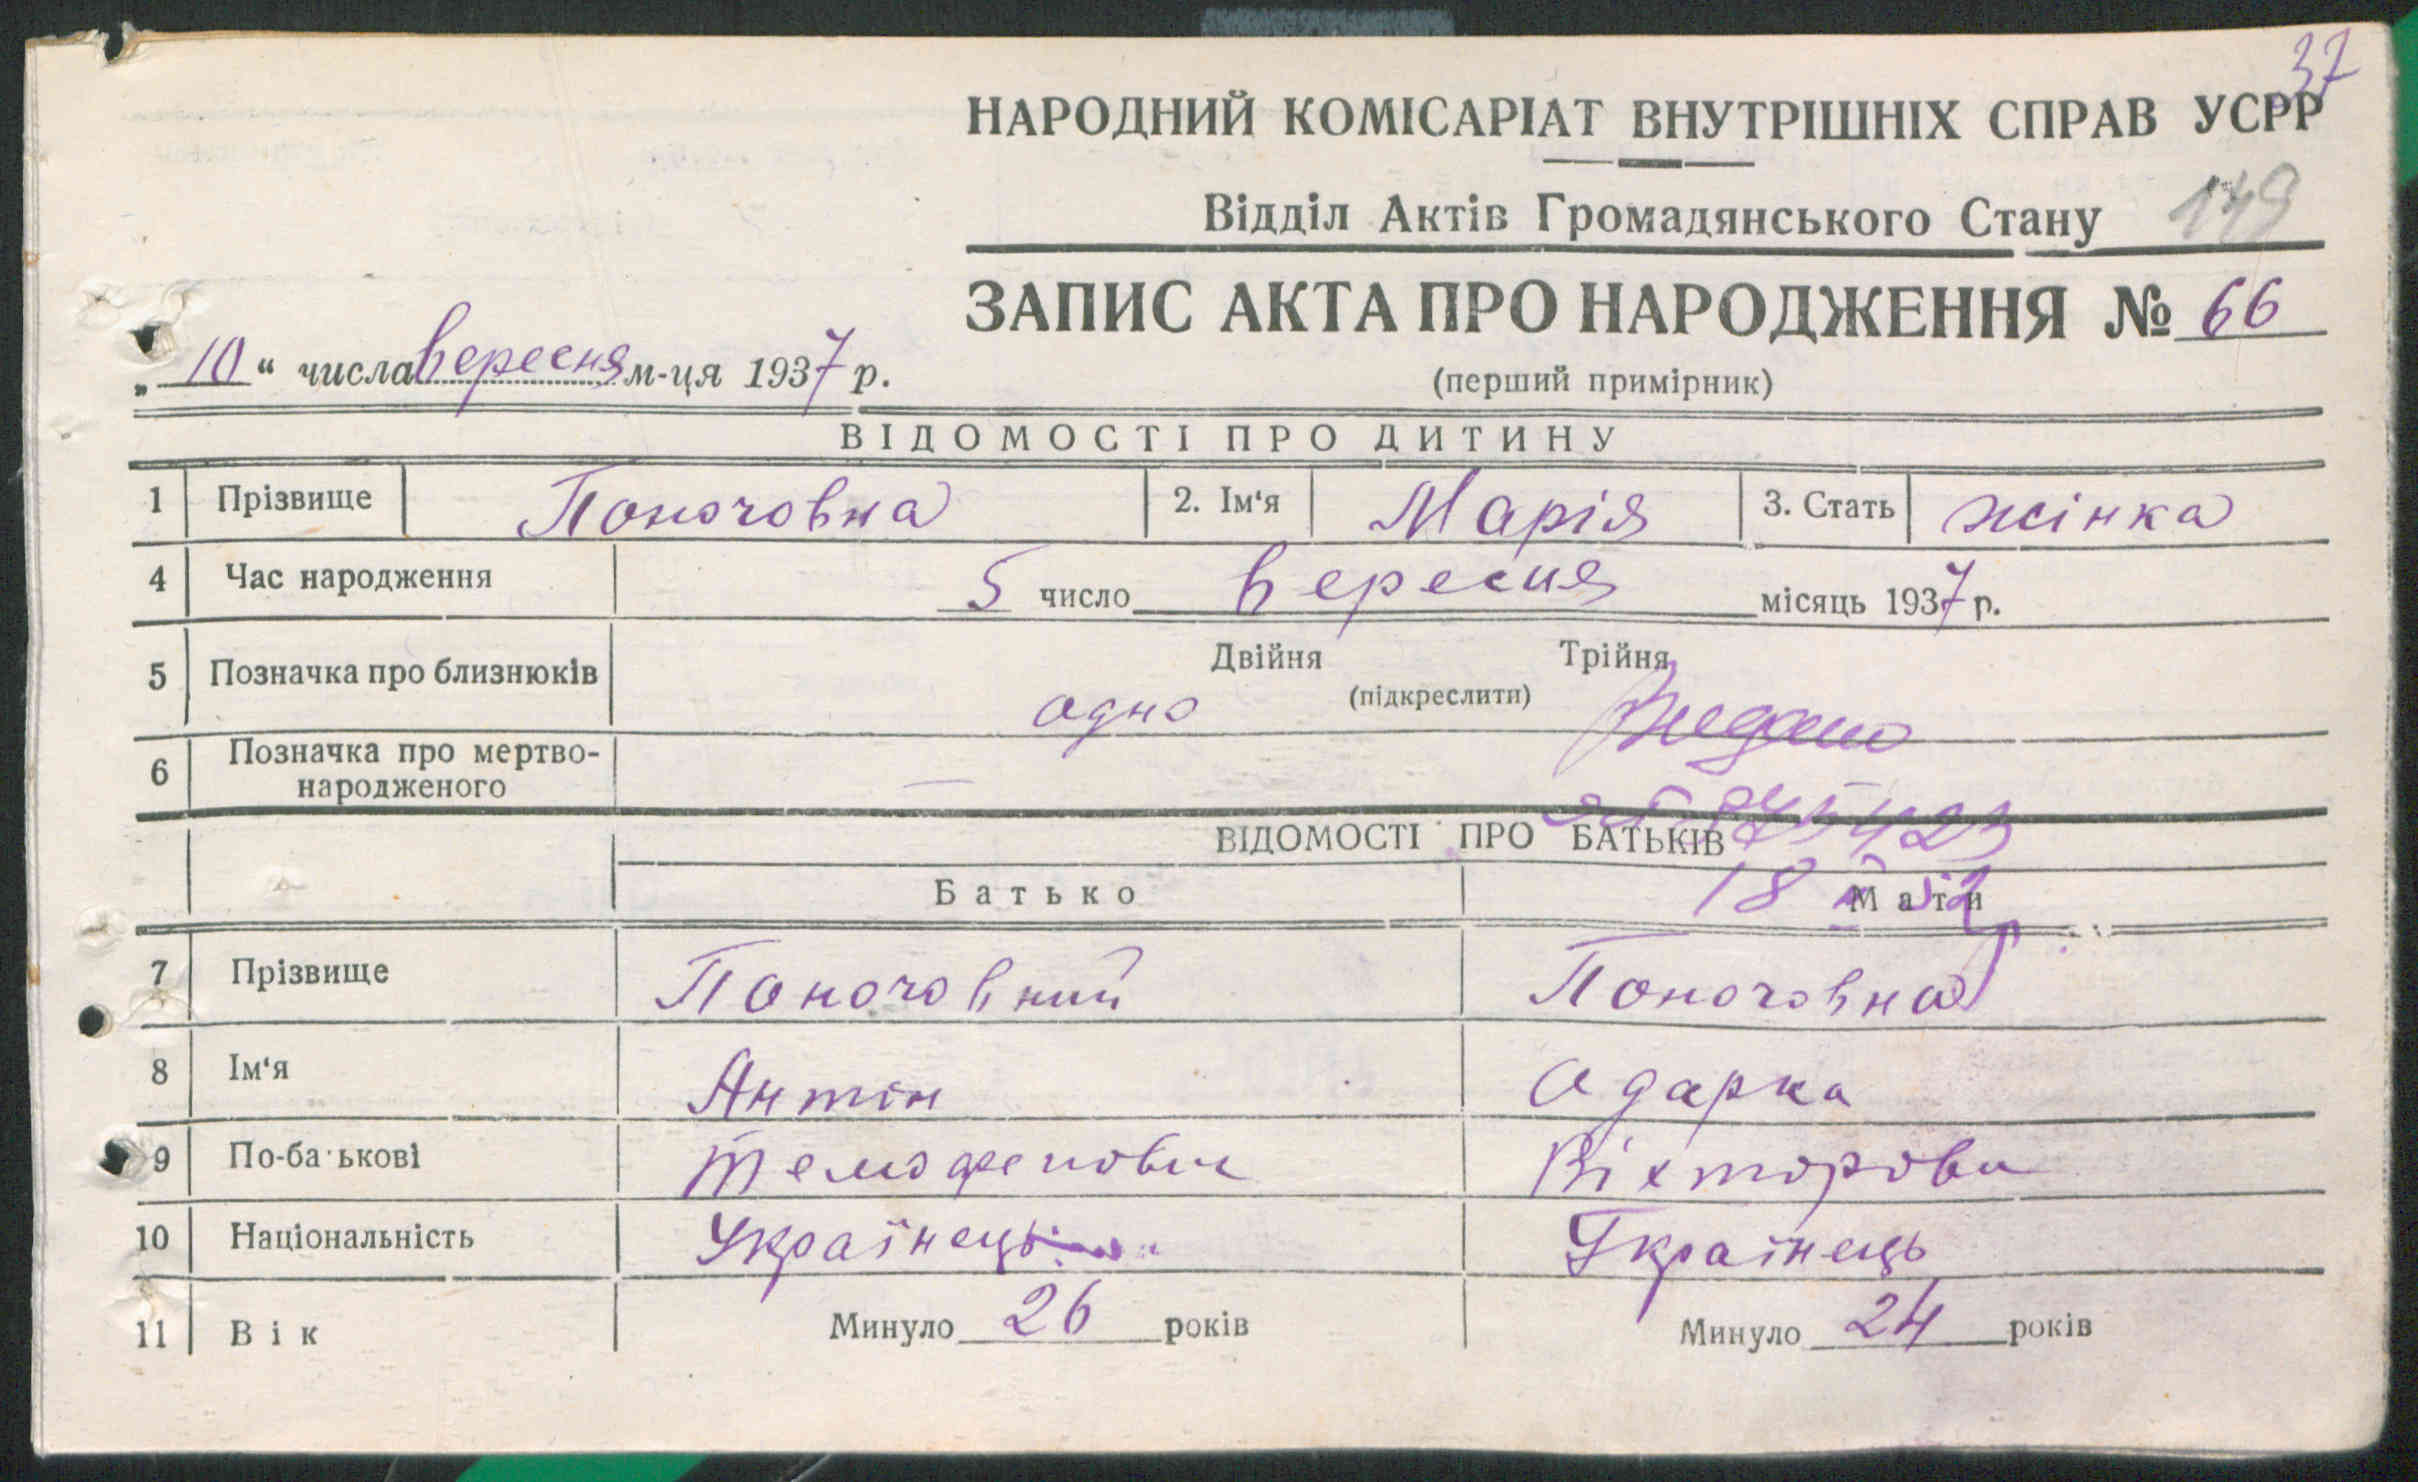 37
НАРОДНИЙ КОМІСАРІАТ ВНУТРІШНІХ СПРАВ УСРР
Відділ Актів Громадянського Стану 149
ЗАПИС АКТА ПРО НАРОДЖЕННЯ № 66
„10“ числа вересня м-ця 1937 р.
(перший примірник)
ВІДОМОСТІ ПРО ДИТИНУ
1 Прізвище Поночовна 2. Ім‘я Марія 3. Стать жінка
4 Час народження 5 число вересня місяць 1937 р.
5 Позначка про близнюків Двійня Трійня
одно (підкреслити)
Видано
6 Позначка про мертво-
народженого —
ВІДОМОСТІ ПРО БАТЬКІВ
Батько Мати
7 Прізвище Поночовний Поночовна
8 Ім‘я Антін Одарка
9 По-батькові Вікторовн
10 Національність Українець Українець
11 Вік Минуло 26 років Минуло 24 років